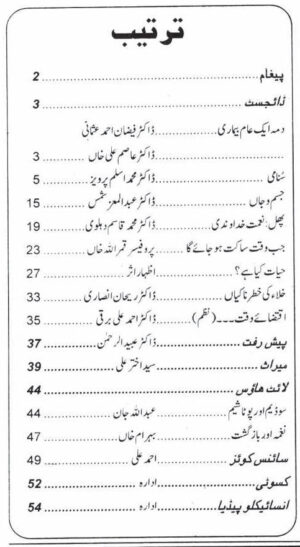 ترتیب
پیغام ........................ 2
ڈائجسٹ ........................ 3
دمہ ایک عام بیماری ........ ڈاکٹر فیضان احمد عثمانی
........ ڈاکٹر عاصم علی خاں ........ 3
سُنامی ........ ڈاکٹر محمد اسلم پرویز ........ 5
جسم وجاں ........ ڈاکٹر عبدالمعز شمس ........ 15
پھل: نعمت خداوندی ........ ڈاکٹر محمد قاسم دہلوی ........ 19
جب وقت ساکت ہو جائے گا ........ پروفیسر قمر اللہ خاں ........ 23
حیات کیا ہے؟ ........ اظہار اثر ........ 27
خلاء کی خطرناکیاں ........ ڈاکٹر ریحان انصاری ........ 33
اقتضائے وقت۔۔۔(نظم) ........ ڈاکٹر احمد علی برقی ........ 35
پیش رفت ........ ڈاکٹر عبید الرحمٰن ........ 37
میراث ........ سید اختر علی ........ 39
لائٹ ھاؤس ........................ 44
سوڈیم اور پوٹاشیم ........ عبداللہ جان ........ 44
نغمہ اور بازگشت ........ بہرام خاں ........ 47
سائنس کوئز ........ احمد علی ........ 49
کسوٹی ........ ادارہ ........ 52
انسائیکلو پیڈیا ........ ادارہ ........ 54